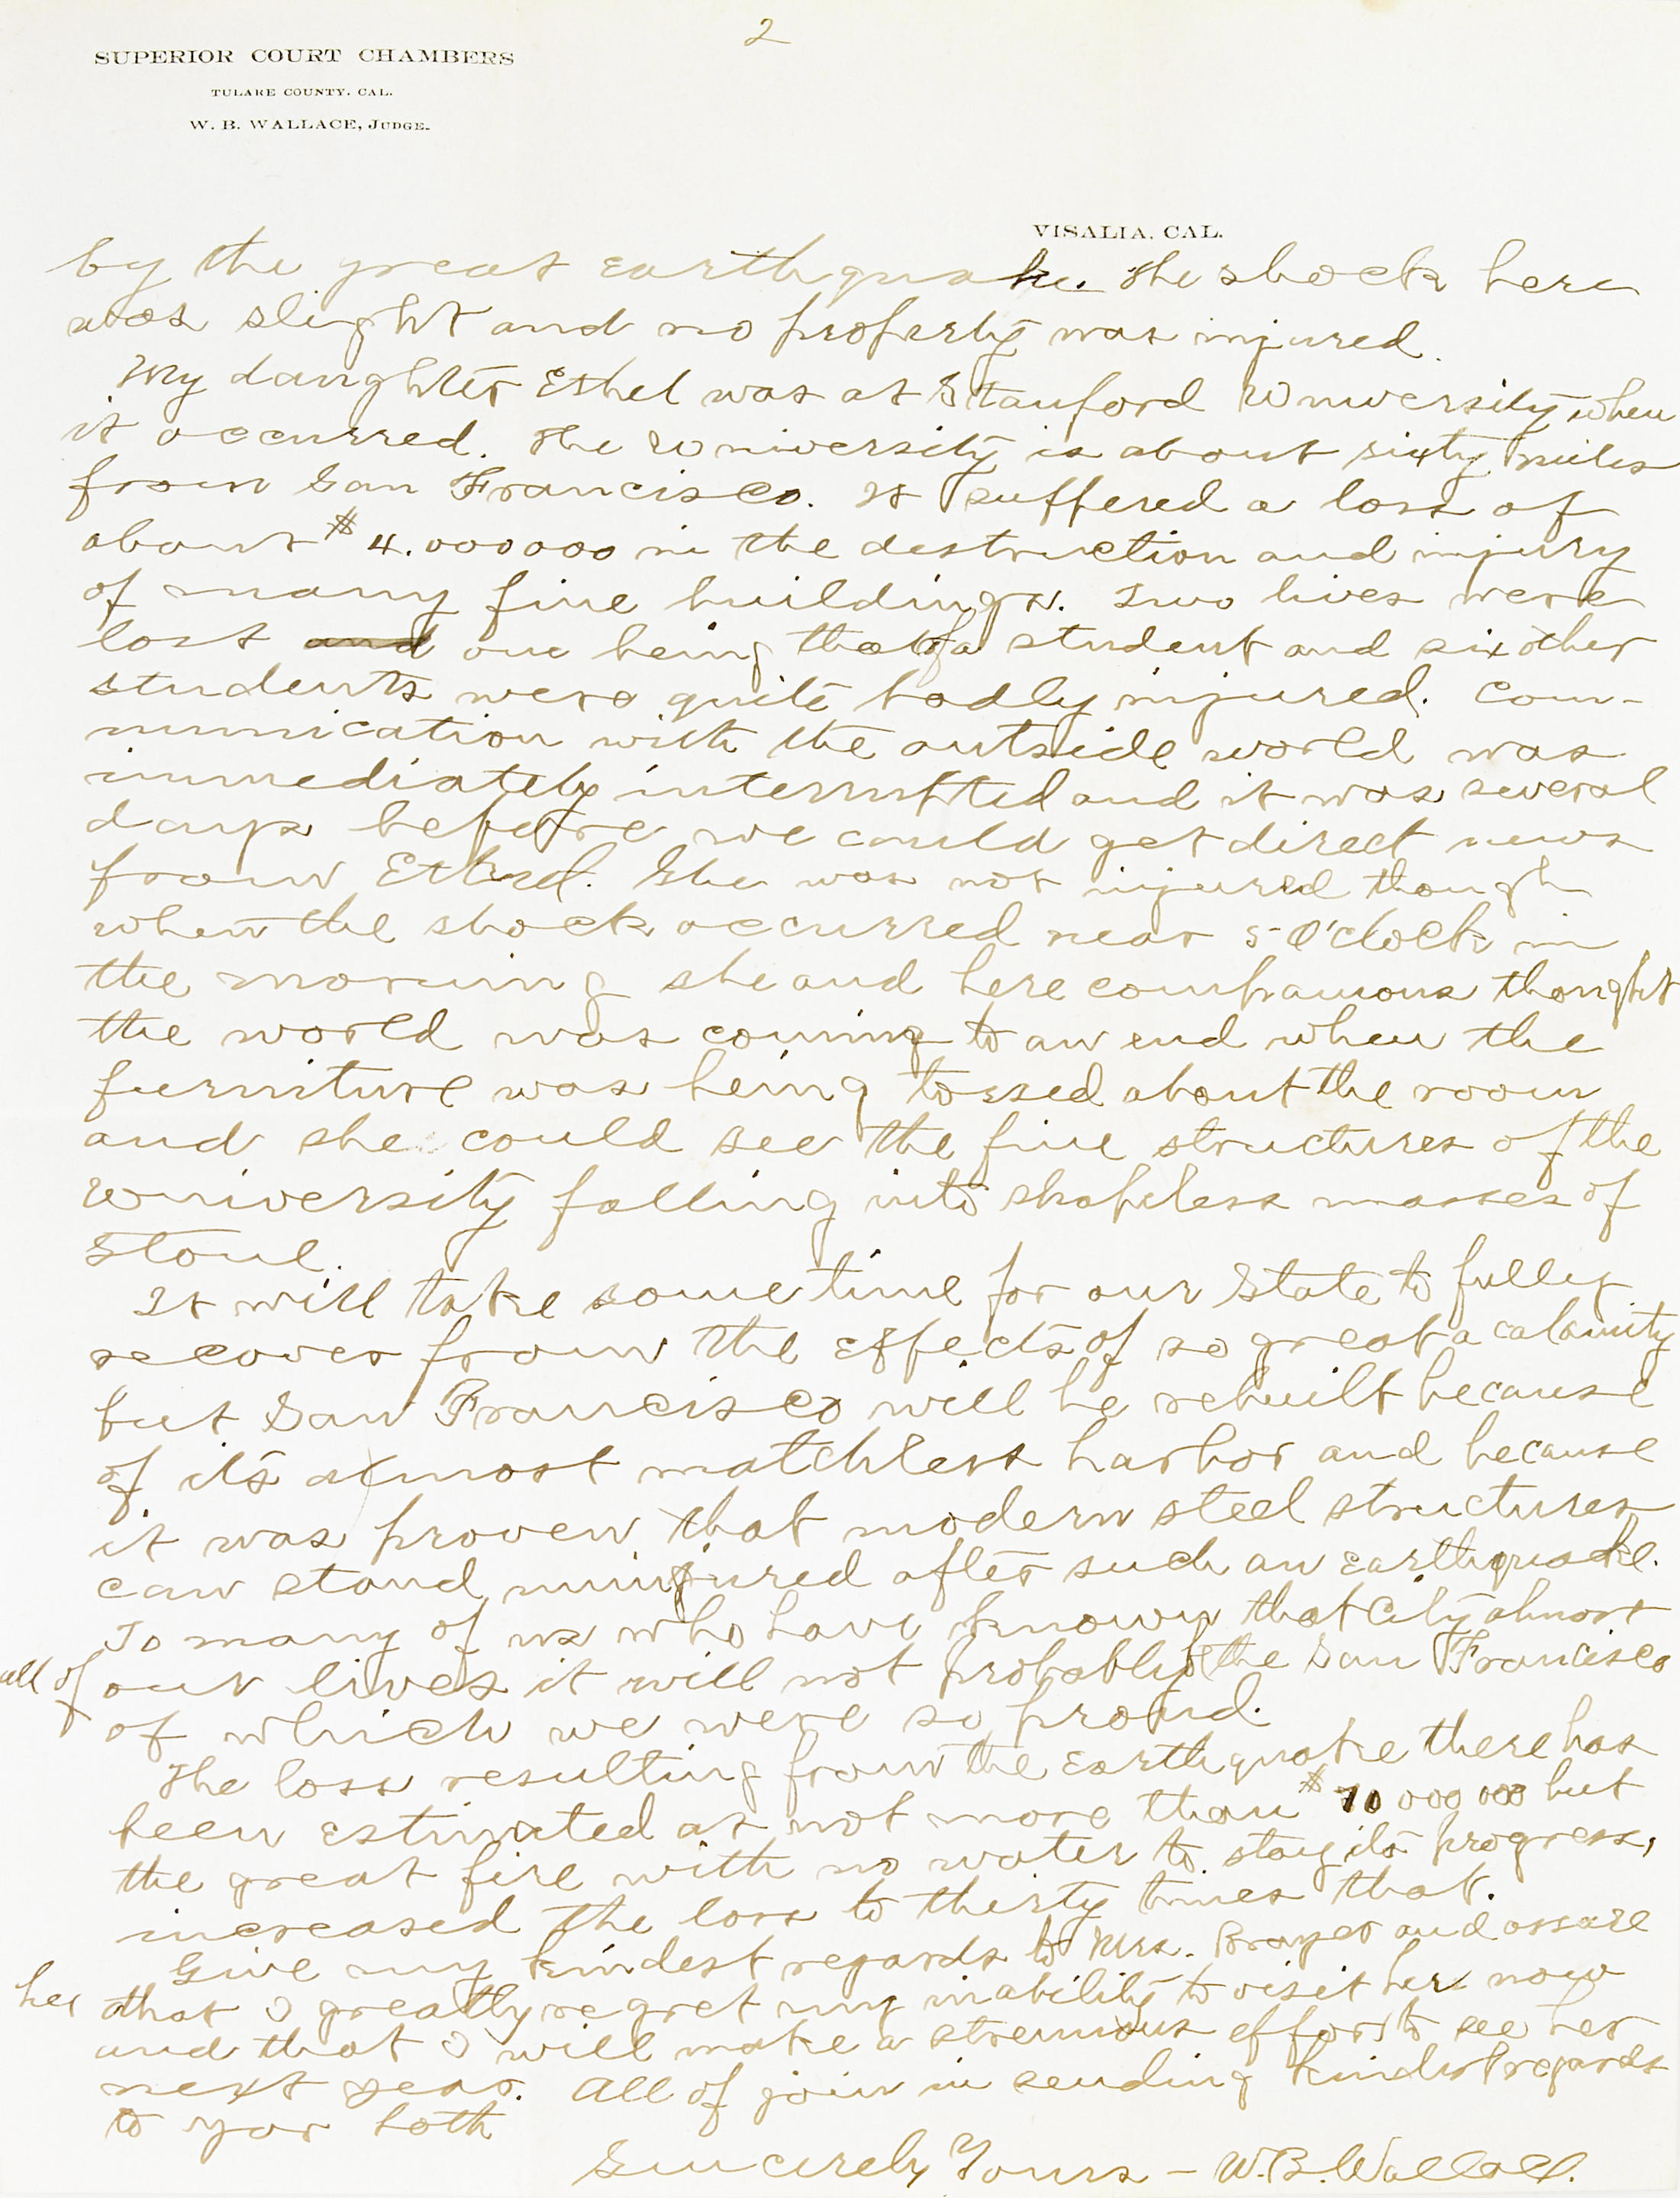 2
SUPERIOR COURT CHAMBERS
TULARE COUNTY, CAL.
W. B. WALLACE, JUDGE.
VISALIA, CAL.
by the great earthquake. The shock here
was slight and no property was injured.
My daughter Ethel was at Stanford University when
it occurred. The University is about sixty miles
from San Francisco. It suffered a loss of
about $4.000000 in the destruction and injury
of many fine buildings. Two lives were
lost and one being that of a student and six other
students were quite badly injured. Com-
munication with the outside world was
immediately interrupted and it was several
days before we could get direct news
from Ethel. She was not injured though
when the shock occurred near 5 O'clock in
the morning she and here companions thought
the world was coming to an end when the
furniture was being tossed about the room
and she could see the fine structures of the
University falling into shapeless masses of
stone.
It will take some time for our State to fully
recover from the effects of so great a calamity
but San Francisco will be rebuilt because
of it's almost matchless harbor and because
it was proven that modern steel structures
can stand uninjured after such an earthquake.
To many of us who have known that City almost
all of our lives it will not probably be the San Francisco
of which we were so proud.
The loss resulting from the earthquake there has
been estimated as not more than $10000000 but
the great fire with no water to stay its progress,
increased the loss to thirty times that.
Give my kindest regards to Mrs. Brayer and assure
her that I greatly regret my inability to visit her now
and that I will make a strenuous effort to see her
next year. All of join in sending kindest regards
to you both
Sincerely Yours - W.B. Wallace.